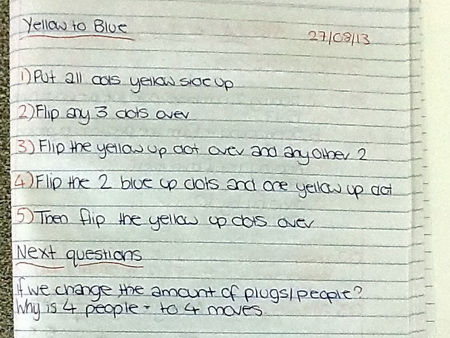 Yellow to Blue
27/08/13
1) Put all dots yellow side up
2) Flip any 3 dots over
3) Flip the yellow up dot over and any other 2
4) Flip the 2 blue up dots and one yellow up dot
5) Then flip the yellow up dots over
Next questions
If we change the amount of plugs/people?
Why is 4 people = to 4 moves